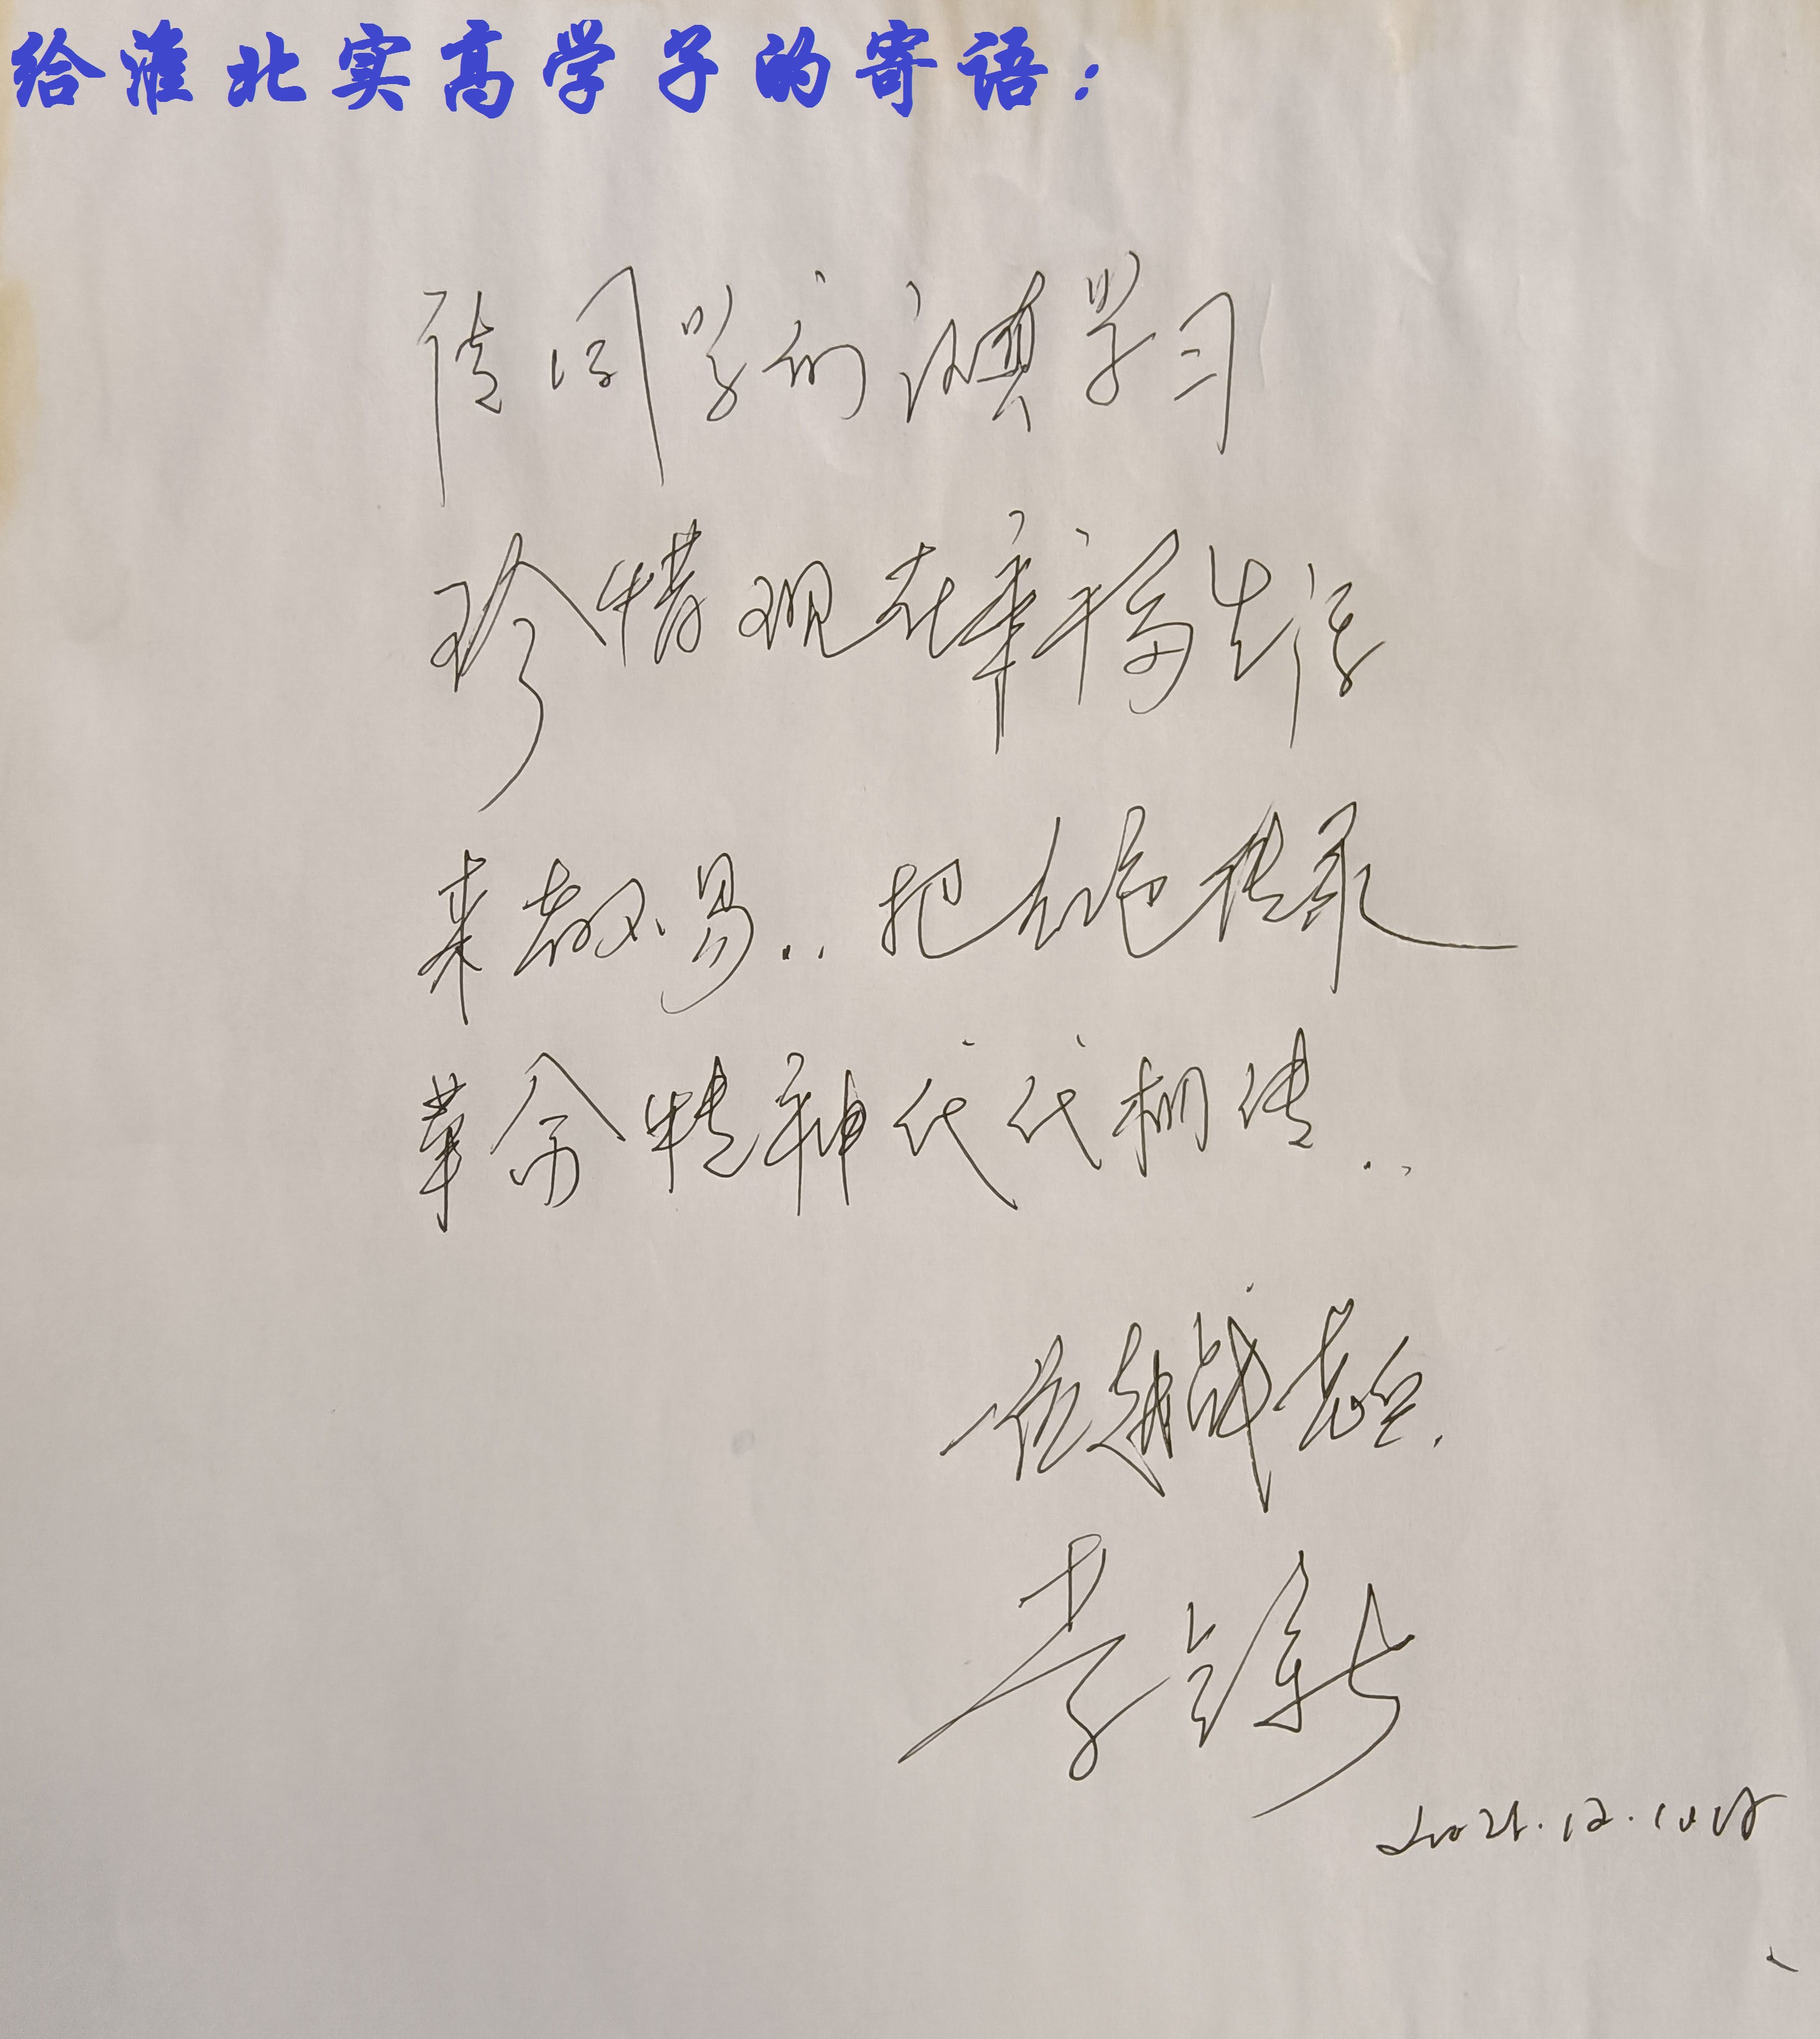 给淮北实高学子的寄语：
请同学们认真学习
珍惜现在幸福生活
来都不易..把红色传承
革命精神代代相传..
一位越战老兵.
李
2021.12.10日